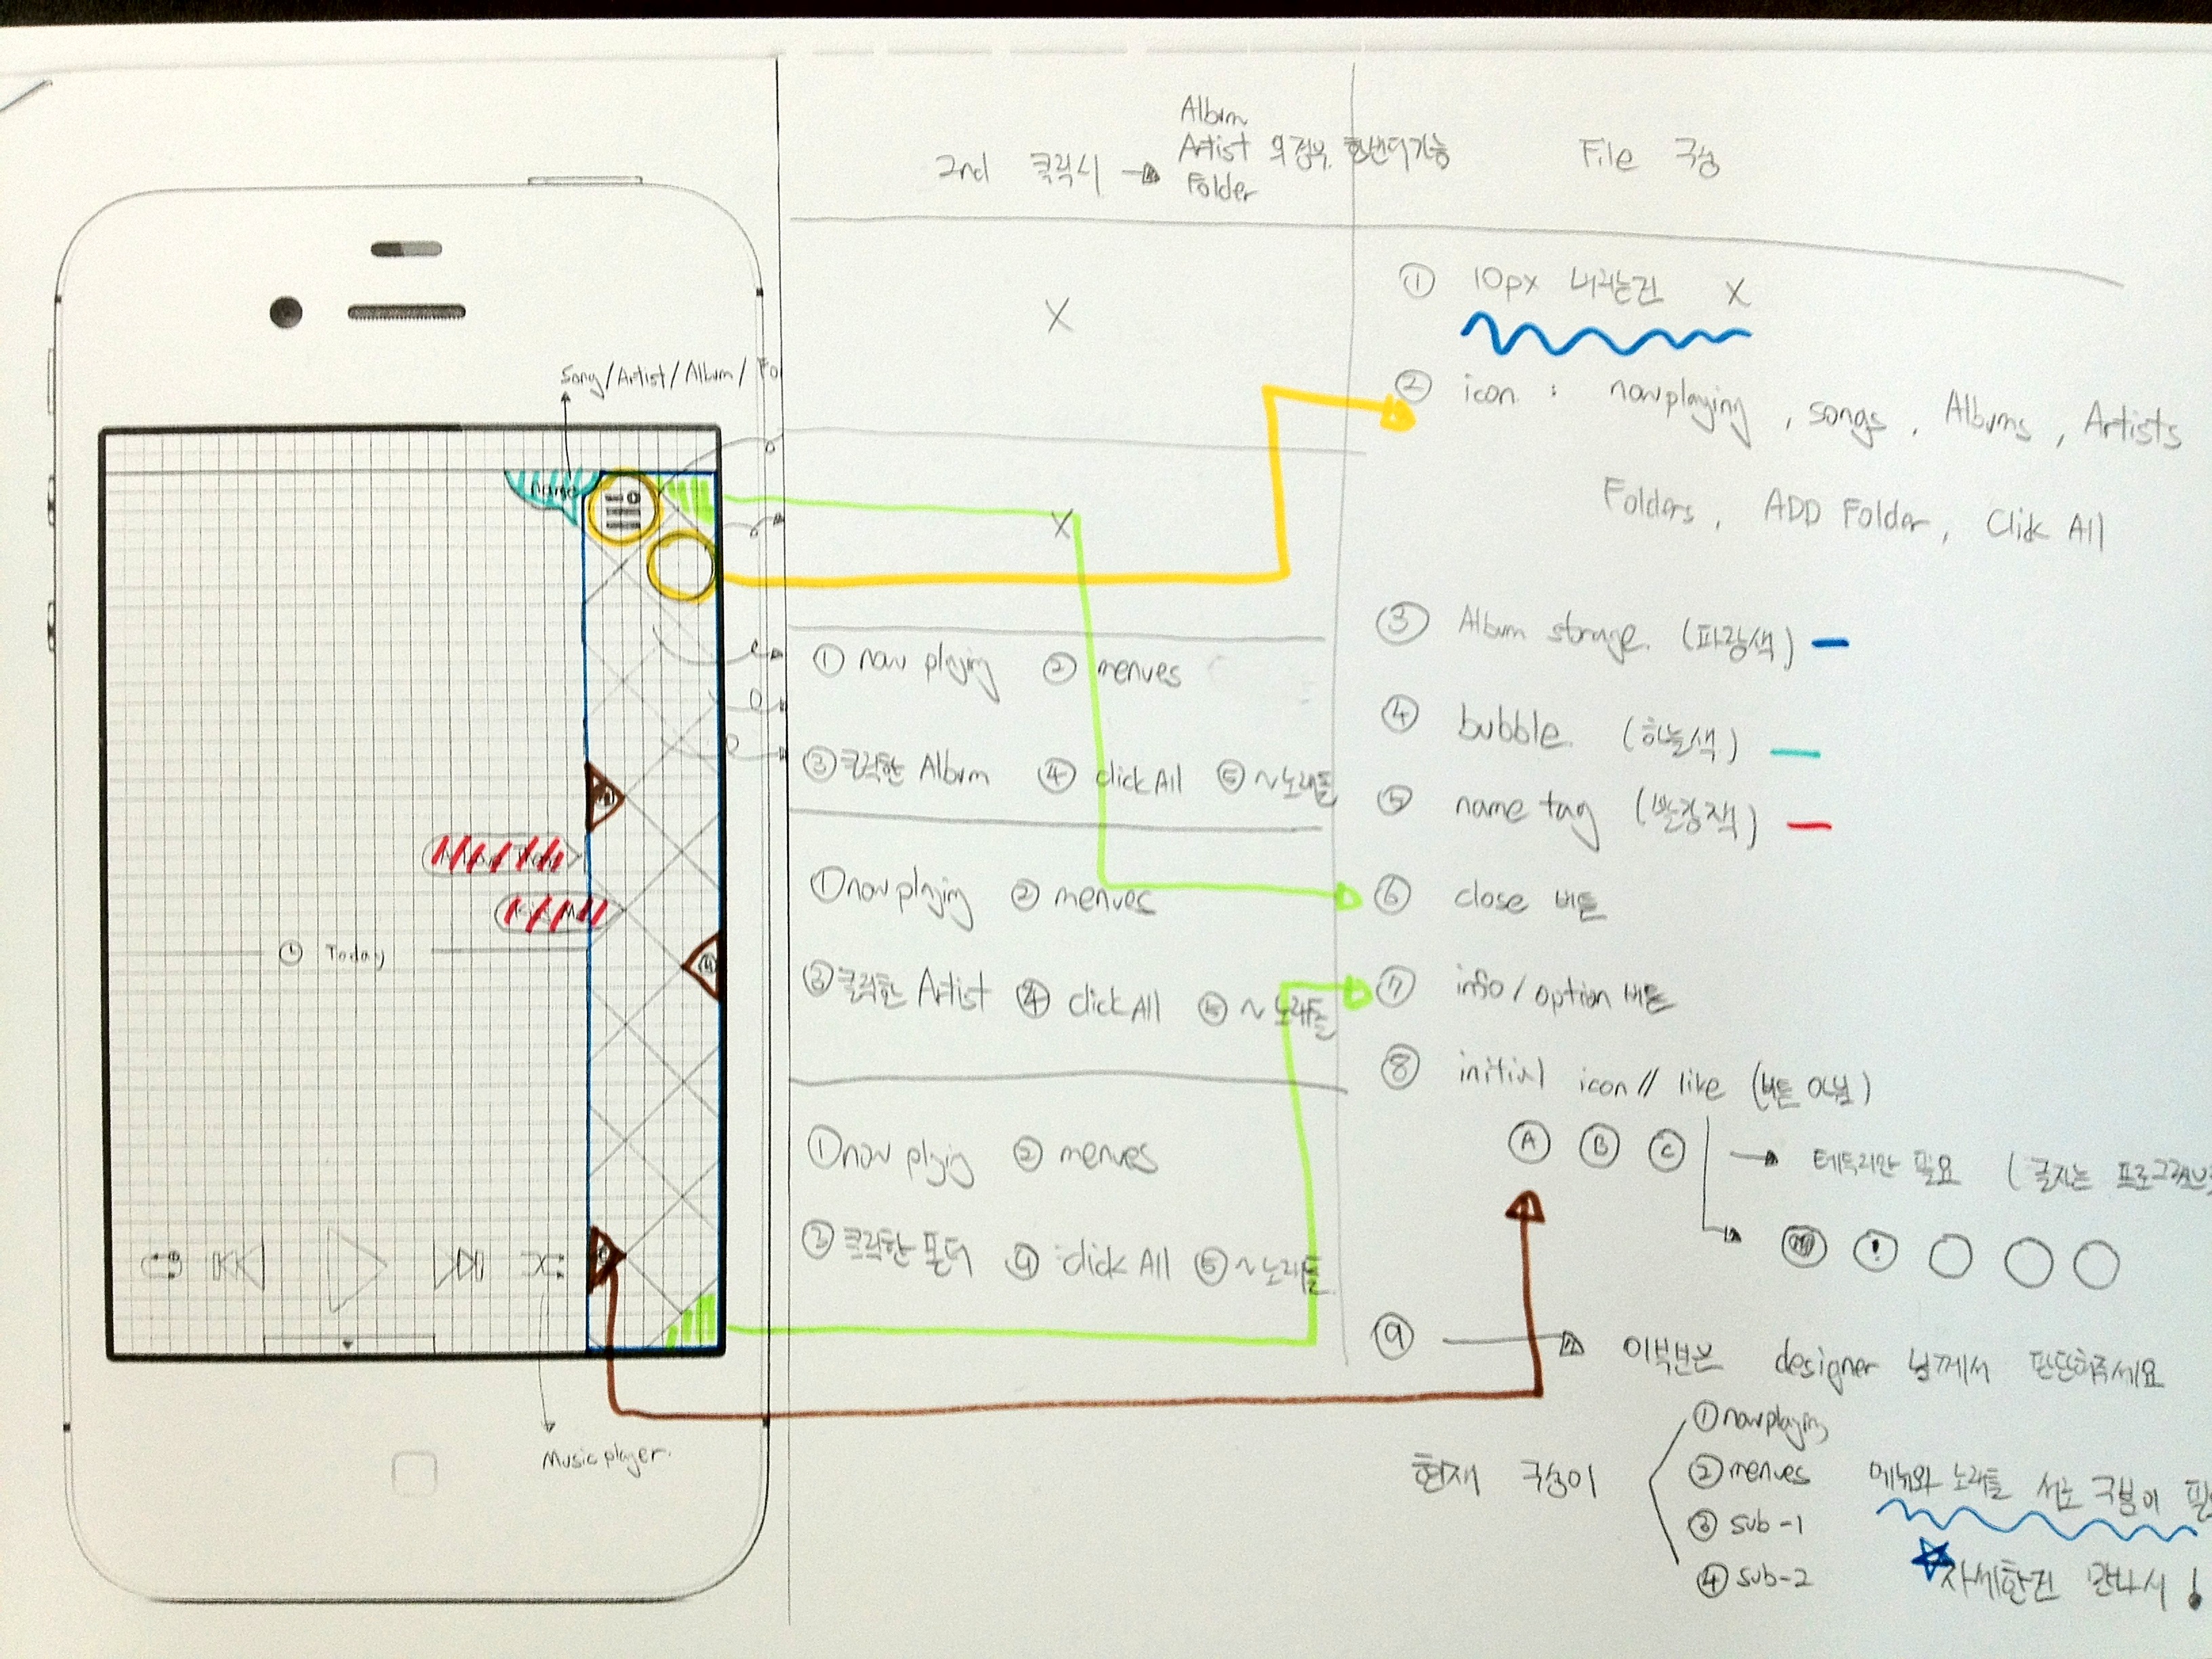 Song/Artist/Album/Fo
name
Today
Music player.
2nd 클릭시
Album
Artist 의경우 한번더가능
Folder
X
X
① now playing ② menues
③ 클릭한 Album ④ click All ⑤ ~노래들
① now playing ② menues
③ 클릭한 Artist ④ click All ⑤ ~노래들
① now plying ② menues
③ 클릭한 폴더 ④ click All ⑤ ~노래들
File 구성
① 10px 내리는건 X
② icon : nowplaying , songs , Albums , Artists
Folders , ADD Folder , Click All
③ Album storage. (파랑색)
④ bubble (하늘색)
⑤ name tag (빨강색)
⑥ close 버튼
⑦ info/option 버튼
⑧ initial icon // like (버튼 아님)
A B C 테두리만 필요 (글자는 프로그래밍
!
⑨ 이부분은 designer 님께서 판단해주세요
현재 구성이
① nowplaying
② menues
③ sub-1
④ sub-2
메뉴와 노래들 서로 구분이 필
자세한건 만나서 !